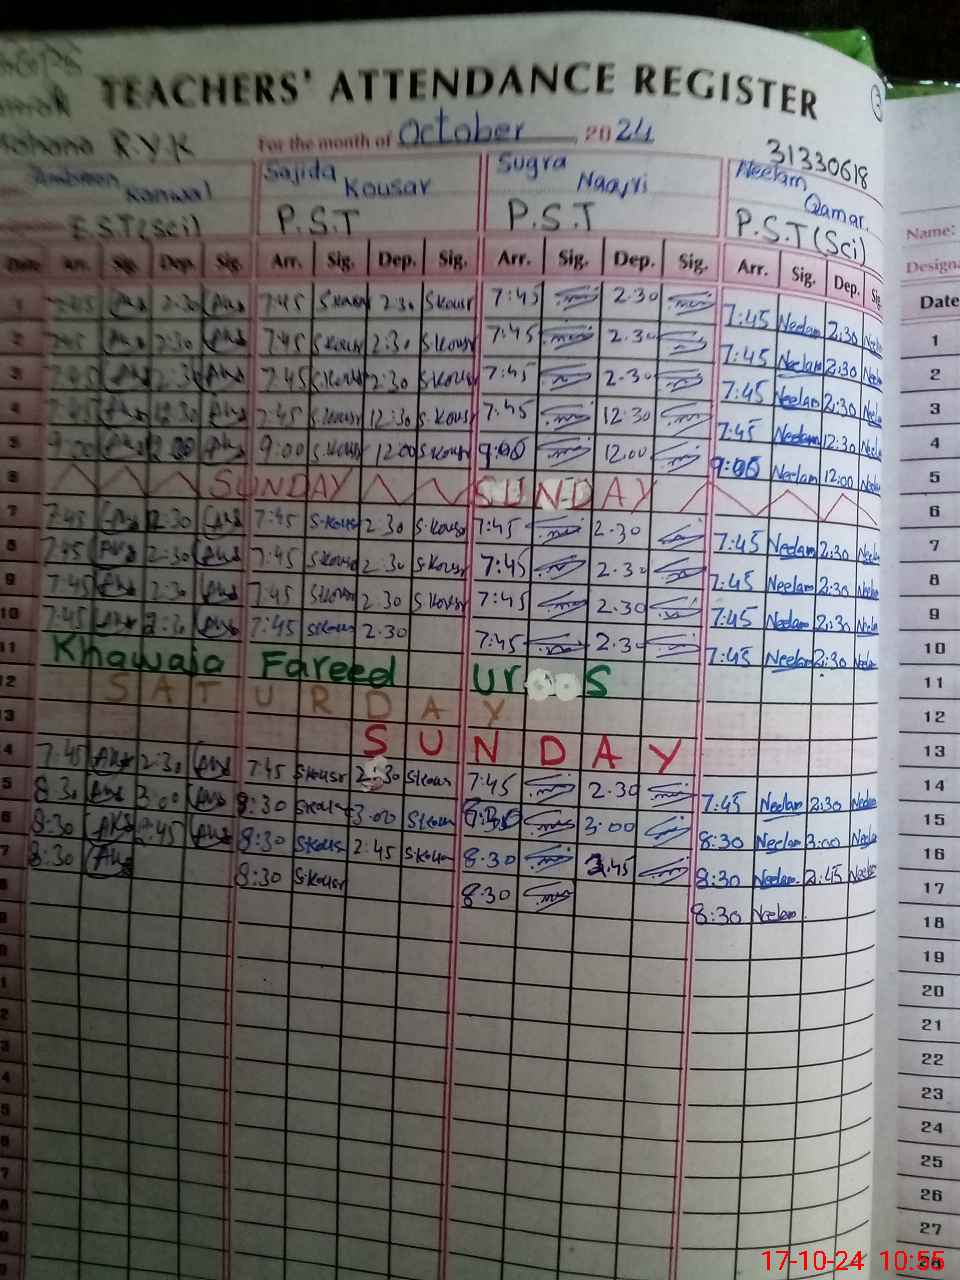 TEACHERS' ATTENDANCE REGISTER
R.Y.K
For the month of October 2024
31330618
Kanwal Sajida Kousar Sugra Naazri Neelam Qamar.
E.S.T(Sci) P.S.T P.S.T P.S.T(Sci)
Date Arr. Sig. Dep. Sig. Arr. Sig. Dep. Sig. Arr. Sig. Dep. Sig. Arr. Sig. Dep. Sig.
1 7:45 2:30 7:45 S.Kousr 2:30 S.Kousr 7:45 2:30 7:45 Neelam 2:30 Neelam
2 7:45 2:30 7:45 S.Kousr 2:30 S.Kousr 7:45 2:30 7:45 Neelam 2:30 Neelam
3 7:45 2:30 7:45 S.Kousr 2:30 S.Kousr 7:45 2:30 7:45 Neelam 2:30 Neelam
4 7:45 12:30 7:45 S.Kousr 12:30 S.Kousr 7:45 12:30 7:45 Neelam 12:30 Neelam
5 9:00 12:00 9:00 S.Kousr 12:00 S.Kousr 9:00 12:00 9:00 Neelam 12:00 Neelam
6 SUNDAY SUNDAY
7 7:45 2:30 7:45 S.Kousr 2:30 S.Kousr 7:45 2:30 7:45 Neelam 2:30 Neelam
8 7:45 2:30 7:45 S.Kousr 2:30 S.Kousr 7:45 2:30 7:45 Neelam 2:30 Neelam
9 7:45 2:30 7:45 S.Kousr 2:30 S.Kousr 7:45 2:30 7:45 Neelam 2:30 Neelam
10 7:45 2:30 7:45 S.Kousr 2:30 7:45 2:30 7:45 Neelam 2:30 Neelam
11 Khawaja Fareed Ur S
12 SATURDAY
13 SUNDAY
14 7:45 2:30 7:45 S.Kousr 2:30 S.Kousr 7:45 2:30 7:45 Neelam 2:30 Neelam
15 8:30 3:00 8:30 S.Kousr 3:00 S.Kousr 8:30 3:00 8:30 Neelam 3:00 Neelam
16 8:30 2:45 8:30 S.Kousr 2:45 S.Kousr 8:30 2:45 8:30 Neelam 2:45 Neelam
17 8:30 8:30 S.Kousr 8:30 8:30 Neelam
Name:
Designa
Date
1
2
3
4
5
6
7
8
9
10
11
12
13
14
15
16
17
18
19
20
21
22
23
24
25
26
27
28
17-10-24 10:55